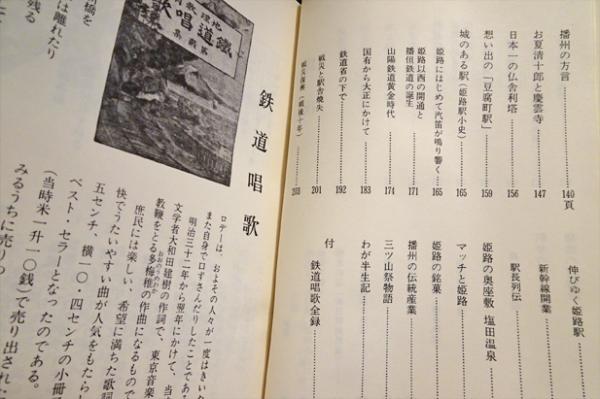 播州の方言……140頁
お夏清十郎と慶雲寺……147
日本一の仏舎利塔……156
想い出の「豆腐町駅」……159
城のある駅(姫路駅小史)……165
姫路にはじめて汽笛が鳴り響く……165
姫路以西の開通と
播但鉄道の誕生……171
山陽鉄道黄金時代……174
国有から大正にかけて……183
鉄道省の下で……192
戦災と駅舎焼失……201
戦災復興(戦後十年)……203
伸びゆく姫路駅……
新幹線開業……
駅長列伝……
姫路の奥座敷 塩田温泉……
マッチと姫路……
姫路の銘菓……
播州の伝統産業……
三ツ山祭物語……
わが半生記……
付
鉄道唱歌全録……
地理教育
鐵道唱歌
第壹集
鉄道唱歌
ロデーは、およその人々が一度はきいた
また自身で口ずさんだりしたことである
明治三十二年から翌年にかけて、当
文学者大和田建樹の作詞で、東京音楽
教鞭をとる多梅稚の作曲になるもので
おおのうめわか
庶民には楽しい、希望に満ちた歌詞
快でうたいやすい曲が人気をもたらし
五センチ、横一〇・四センチの小冊
ベスト・セラーとなったのである。
(当時米一升一〇銭)で売り出された
みるうちに売りつ
橋を
は離れたり
残る